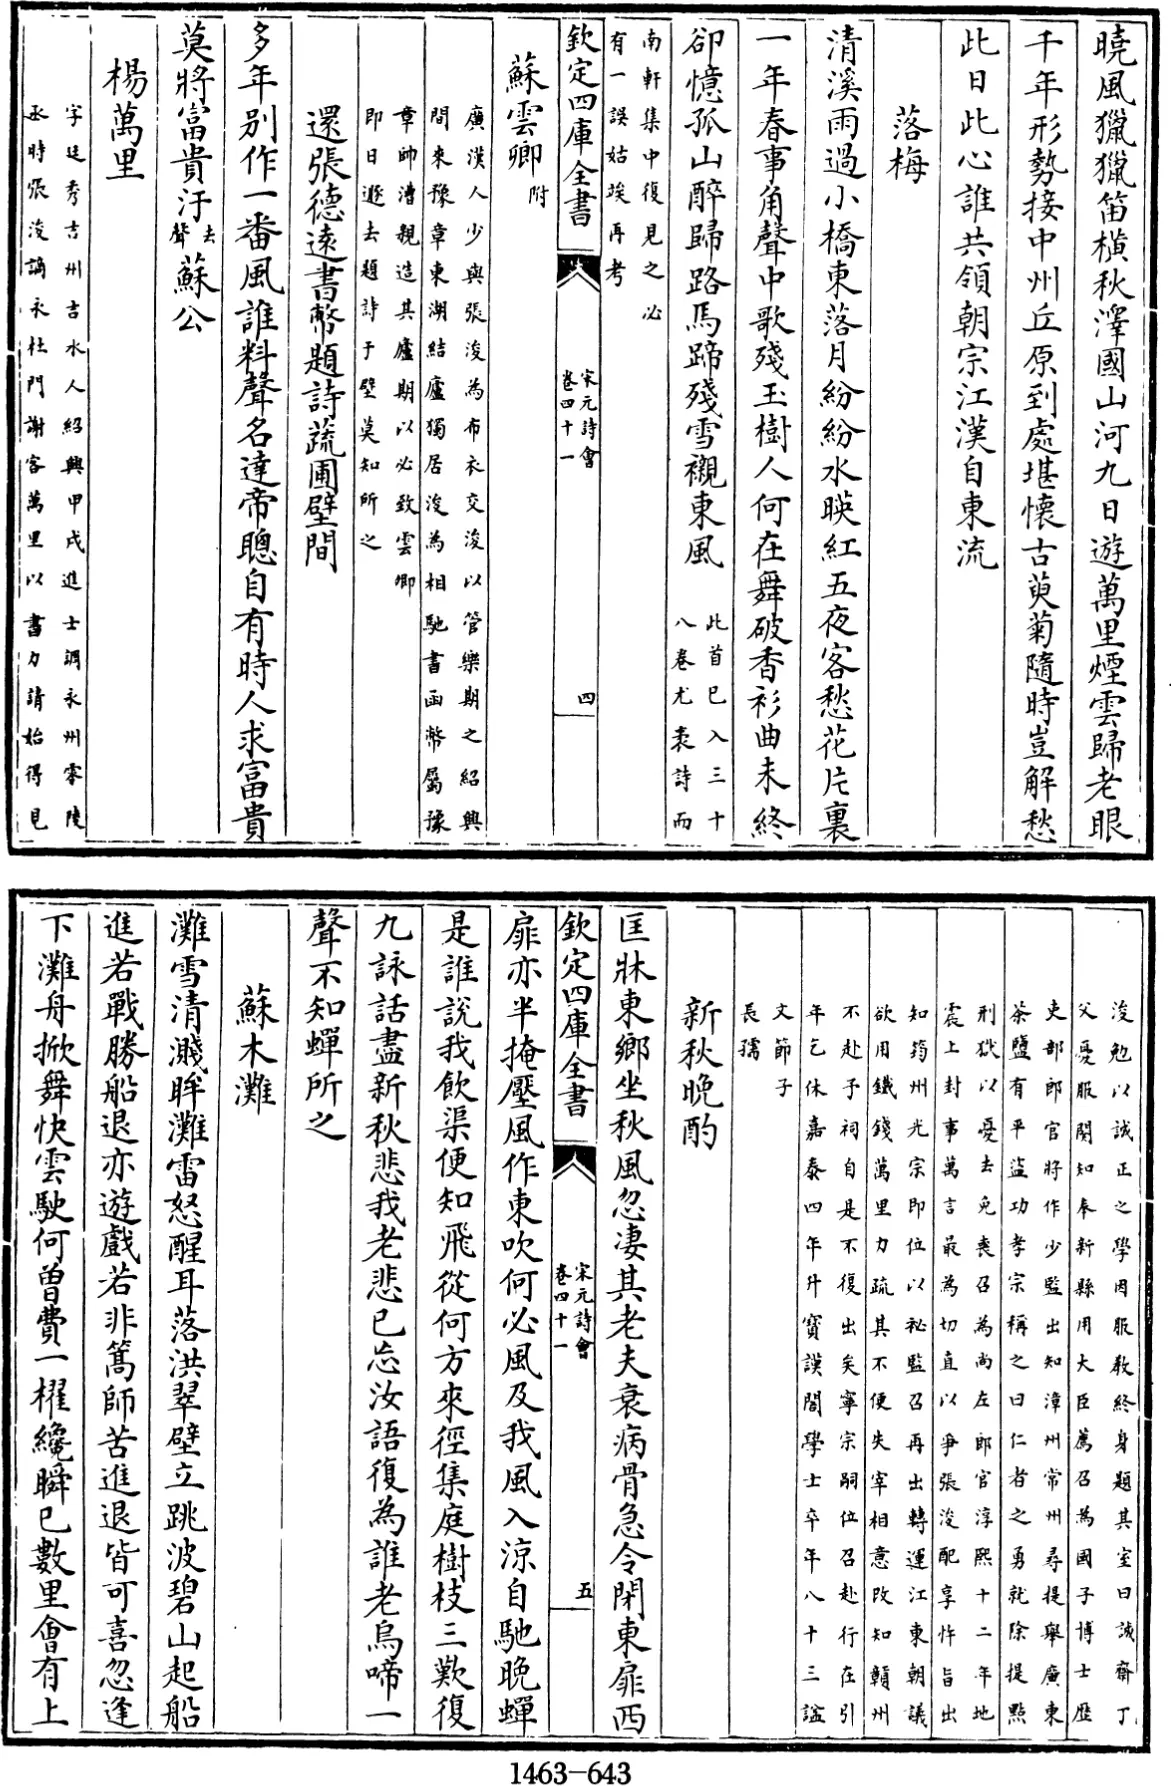 曉風獵獵笛橫秋澤國山河九日遊萬里煙雲歸老眼
千年形勢接中州丘原到處堪懷古萸菊隨時豈解愁
此日此心誰共領朝宗江漢自東流
落梅
清溪雨過小橋東落月紛紛水暎紅五夜客愁花片裏
一年春事角聲中歌殘玉樹人何在舞破香衫曲未終
卻憶孤山醉歸路馬蹄殘雪襯東風
此首已入三十
八卷尤袤詩而
南軒集中復見之必
有一誤姑埃再考
欽定四庫全書
宋元詩會
卷四十一
四
蘇雲卿附
廣漢人少與張浚為布衣交浚以管樂期之紹興
間來豫章東湖結廬獨居浚為相馳書函幣屬豫
章帥漕親造其廬期以必致雲卿
即日遯去題詩于壁莫知所之
還張德遠書幣題詩蔬圃壁間
多年別作一番風誰料聲名達帝聰自有時人求富貴
莫將富貴汙去聲蘇公
楊萬里
字廷秀吉州吉水人紹興甲戌進士調永州零陵
丞時張浚謫永杜門謝客萬里以書力請始得見
浚勉以誠正之學因服教終身題其室曰誠齋丁
父憂服闋知奉新縣用大臣薦召為國子博士歷
吏部郎官將作少監出知漳州常州尋提舉廣東
茶鹽有平盜功孝宗稱之曰仁者之勇就除提點
刑獄以憂去免喪召為尚左郎官淳熙十二年地
震上封事萬言最為切直以爭張浚配享忤旨出
知筠州光宗即位以祕監召再出轉運江東朝議
欲用鐵錢萬里力疏其不便失宰相意改知贛州
不赴予祠自是不復出矣寧宗嗣位召赴行在引
年乞休嘉泰四年升寶謨閣學士卒年八十三諡
文節子
長孺
新秋晚酌
匡牀東鄉坐秋風忽凄其老夫衰病骨急令閉東扉西
欽定四庫全書
宋元詩會
卷四十一
五
扉亦半掩壓風作東吹何必風及我風入涼自馳晚蟬
是誰說我飲渠便知飛從何方來徑集庭樹枝三歎復
九詠話盡新秋悲我老悲已忘汝語復為誰老烏啼一
聲不知蟬所之
蘇木灘
灘雪清濺眸灘雷怒醒耳落洪翠壁立跳波碧山起船
進若戰勝船退亦遊戲若非篙師苦進退皆可喜忽逢
下灘舟掀舞快雲駛何曾費一櫂纔瞬已數里會有上
1463-643